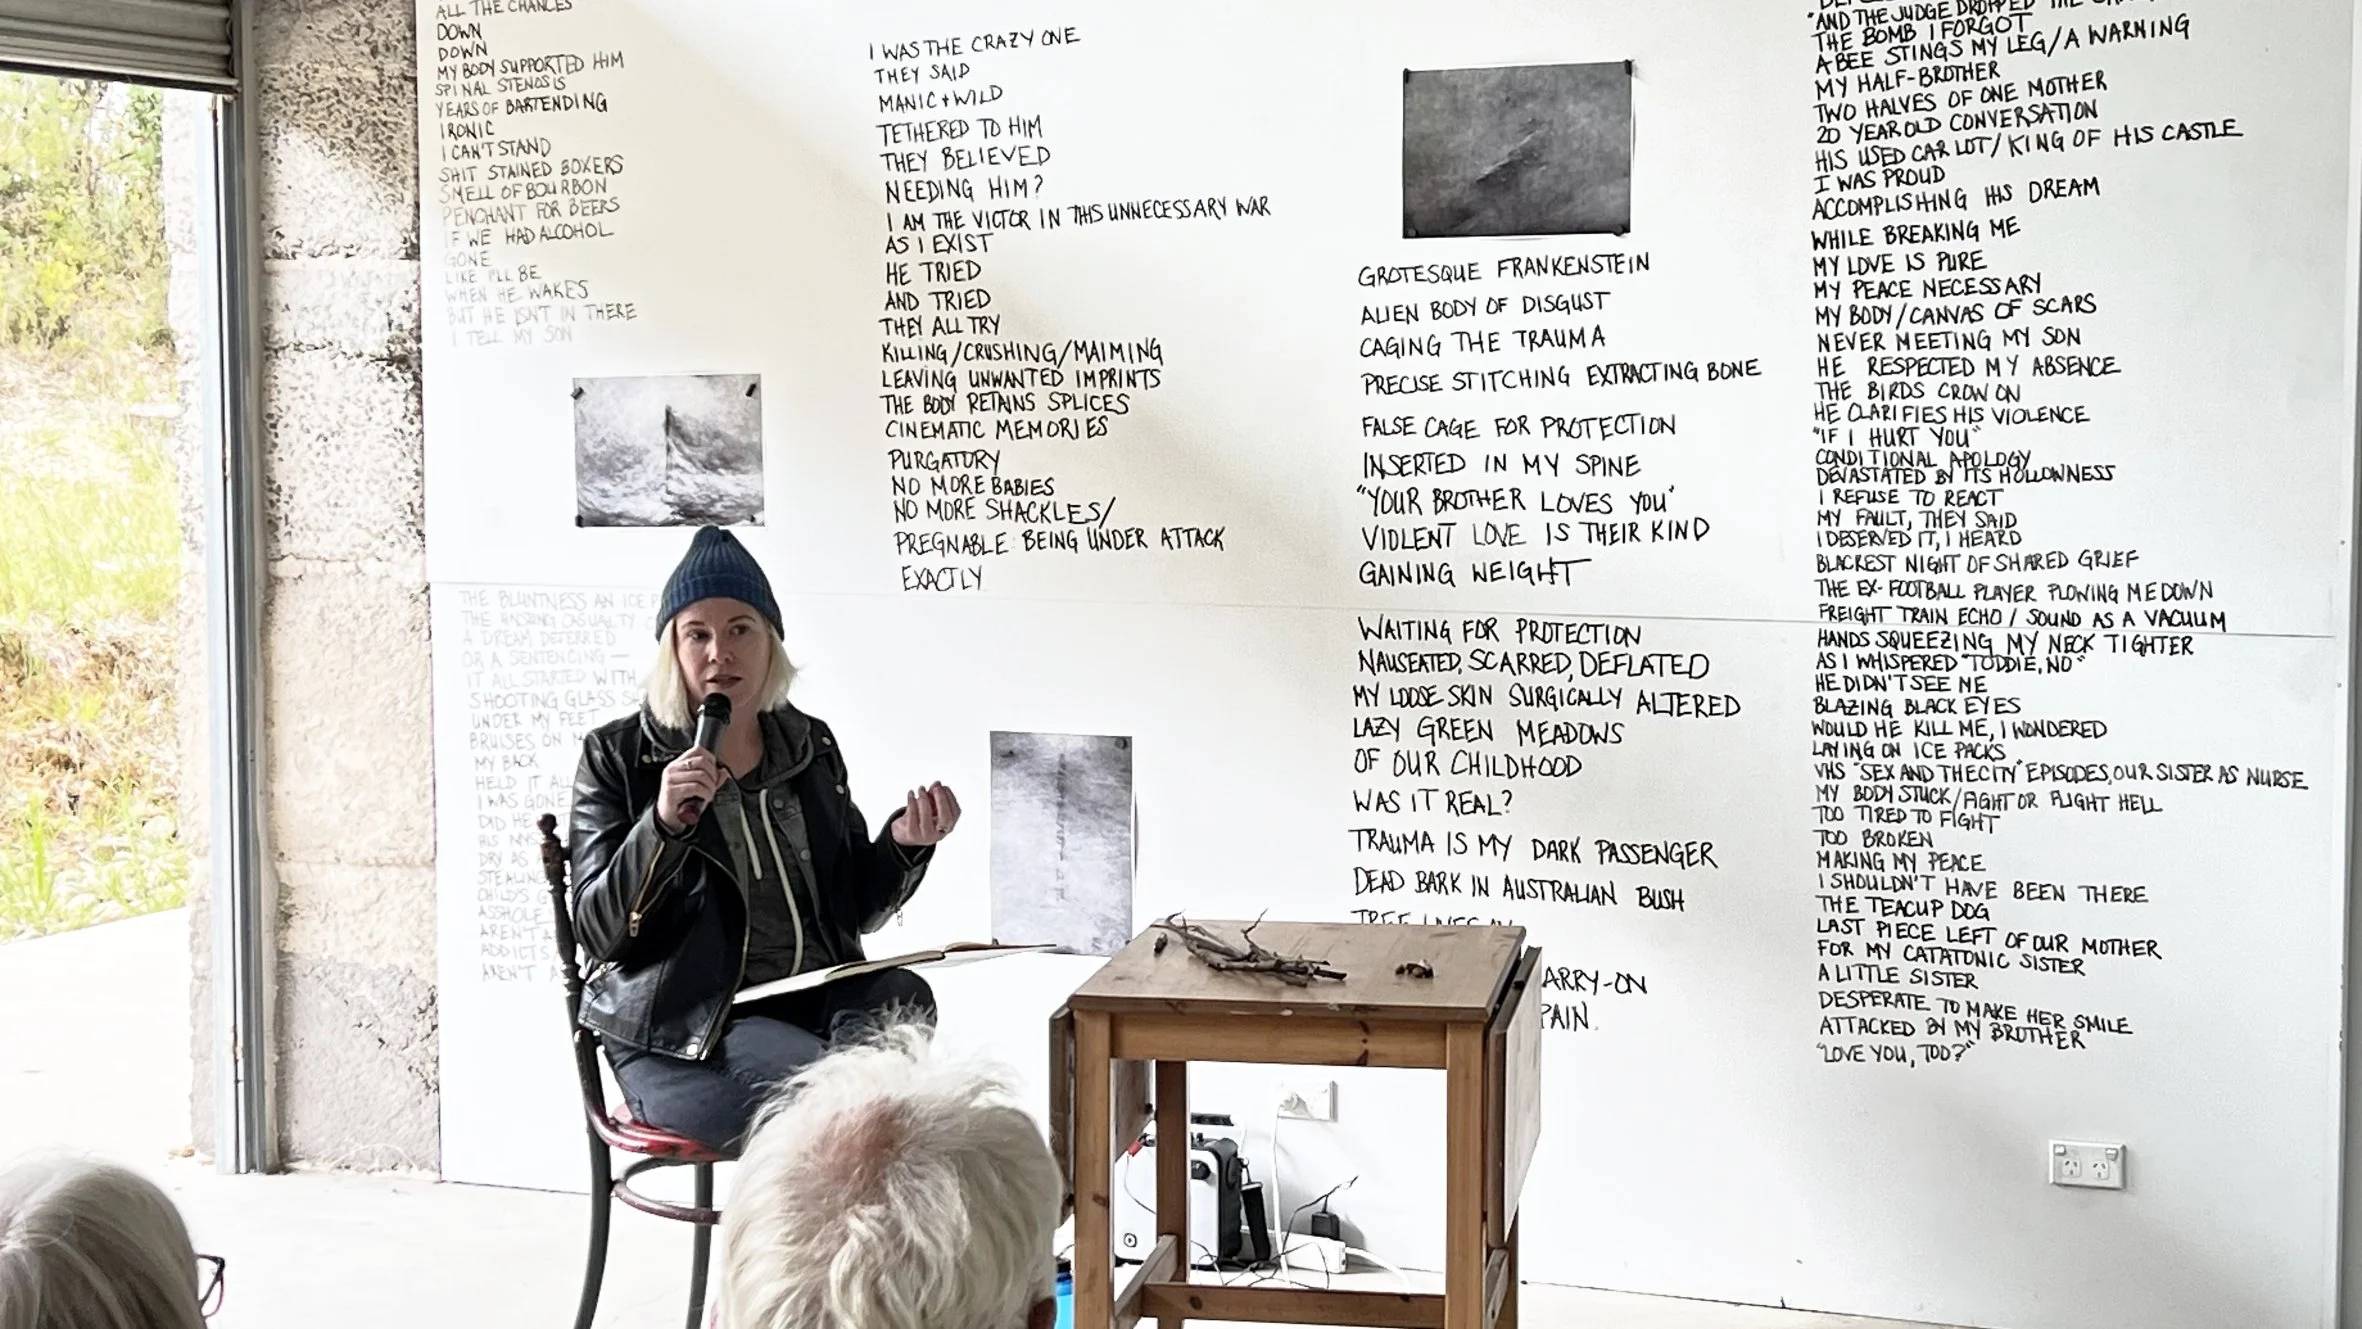 ALL THE CHANCES
DOWN
DOWN
MY BODY SUPPORTED HIM
SPINAL STENOSIS
YEARS OF BARTENDING
IRONIC
I CAN'T STAND
SHIT STAINED BOXERS
SMELL OF BOURBON
PENCHANT FOR BEERS
IF WE HAD ALCOHOL
GONE
LIKE I'LL BE
WHEN HE WAKES
BUT HE ISN'T IN THERE
I TELL MY SON
THE BLUNTNESS AN ICE
THE CASUALTY
A DREAM DEFERRED
OR A SENTENCING —
IT ALL STARTED WITH
SHOOTING GLASS
UNDER MY FEET
BRUISES ON
MY BACK
HELD IT ALL
I WAS GONE
DID HE
HIS
DRY AS
STEALING
CHILD'S
ASSHOLE
AREN'T
ADDICTS
AREN'T
I WAS THE CRAZY ONE
THEY SAID
MANIC + WILD
TETHERED TO HIM
THEY BELIEVED
NEEDING HIM?
I AM THE VICTOR IN THIS UNNECESSARY WAR
AS I EXIST
HE TRIED
AND TRIED
THEY ALL TRY
KILLING/CRUSHING/MAIMING
LEAVING UNWANTED IMPRINTS
THE BODY RETAINS SPLICES
CINEMATIC MEMORIES
PURGATORY
NO MORE BABIES
NO MORE SHACKLES/
PREGNABLE BEING UNDER ATTACK
EXACTLY
GROTESQUE FRANKENSTEIN
ALIEN BODY OF DISGUST
CAGING THE TRAUMA
PRECISE STITCHING EXTRACTING BONE
FALSE CAGE FOR PROTECTION
INSERTED IN MY SPINE
"YOUR BROTHER LOVES YOU"
VIOLENT LOVE IS THEIR KIND
GAINING WEIGHT
WAITING FOR PROTECTION
NAUSEATED, SCARRED, DEFLATED
MY LOOSE SKIN SURGICALLY ALTERED
LAZY GREEN MEADOWS
OF OUR CHILDHOOD
WAS IT REAL?
TRAUMA IS MY DARK PASSENGER
DEAD BARK IN AUSTRALIAN BUSH
TREE LIVES
ARRY-ON
PAIN.
"AND THE JUDGE DROPPED THE
THE BOMB I FORGOT
A BEE STINGS MY LEG/A WARNING
MY HALF-BROTHER
TWO HALVES OF ONE MOTHER
20 YEAR OLD CONVERSATION
HIS USED CAR LOT/KING OF HIS CASTLE
I WAS PROUD
ACCOMPLISHING HIS DREAM
WHILE BREAKING ME
MY LOVE IS PURE
MY PEACE NECESSARY
MY BODY/CANVAS OF SCARS
NEVER MEETING MY SON
HE RESPECTED MY ABSENCE
THE BIRDS CROW ON
HE CLARIFIES HIS VIOLENCE
"IF I HURT YOU"
CONDITIONAL APOLOGY
DEVASTATED BY ITS HOLLOWNESS
I REFUSE TO REACT
MY FAULT, THEY SAID
I DESERVED IT, I HEARD
BLACKEST NIGHT OF SHARED GRIEF
THE EX-FOOTBALL PLAYER PLOWING ME DOWN
FREIGHT TRAIN ECHO / SOUND AS A VACUUM
HANDS SQUEEZING MY NECK TIGHTER
AS I WHISPERED "TODDIE, NO"
HE DIDN'T SEE ME
BLAZING BLACK EYES
WOULD HE KILL ME, I WONDERED
LAYING ON ICE PACKS
VHS "SEX AND THE CITY" EPISODES, OUR SISTER AS NURSE
MY BODY STUCK/FIGHT OR FLIGHT HELL
TOO TIRED TO FIGHT
TOO BROKEN
MAKING MY PEACE
I SHOULDN'T HAVE BEEN THERE
THE TEACUP DOG
LAST PIECE LEFT OF OUR MOTHER
FOR MY CATATONIC SISTER
A LITTLE SISTER
DESPERATE TO MAKE HER SMILE
ATTACKED BY MY BROTHER
"LOVE YOU, TOO?"